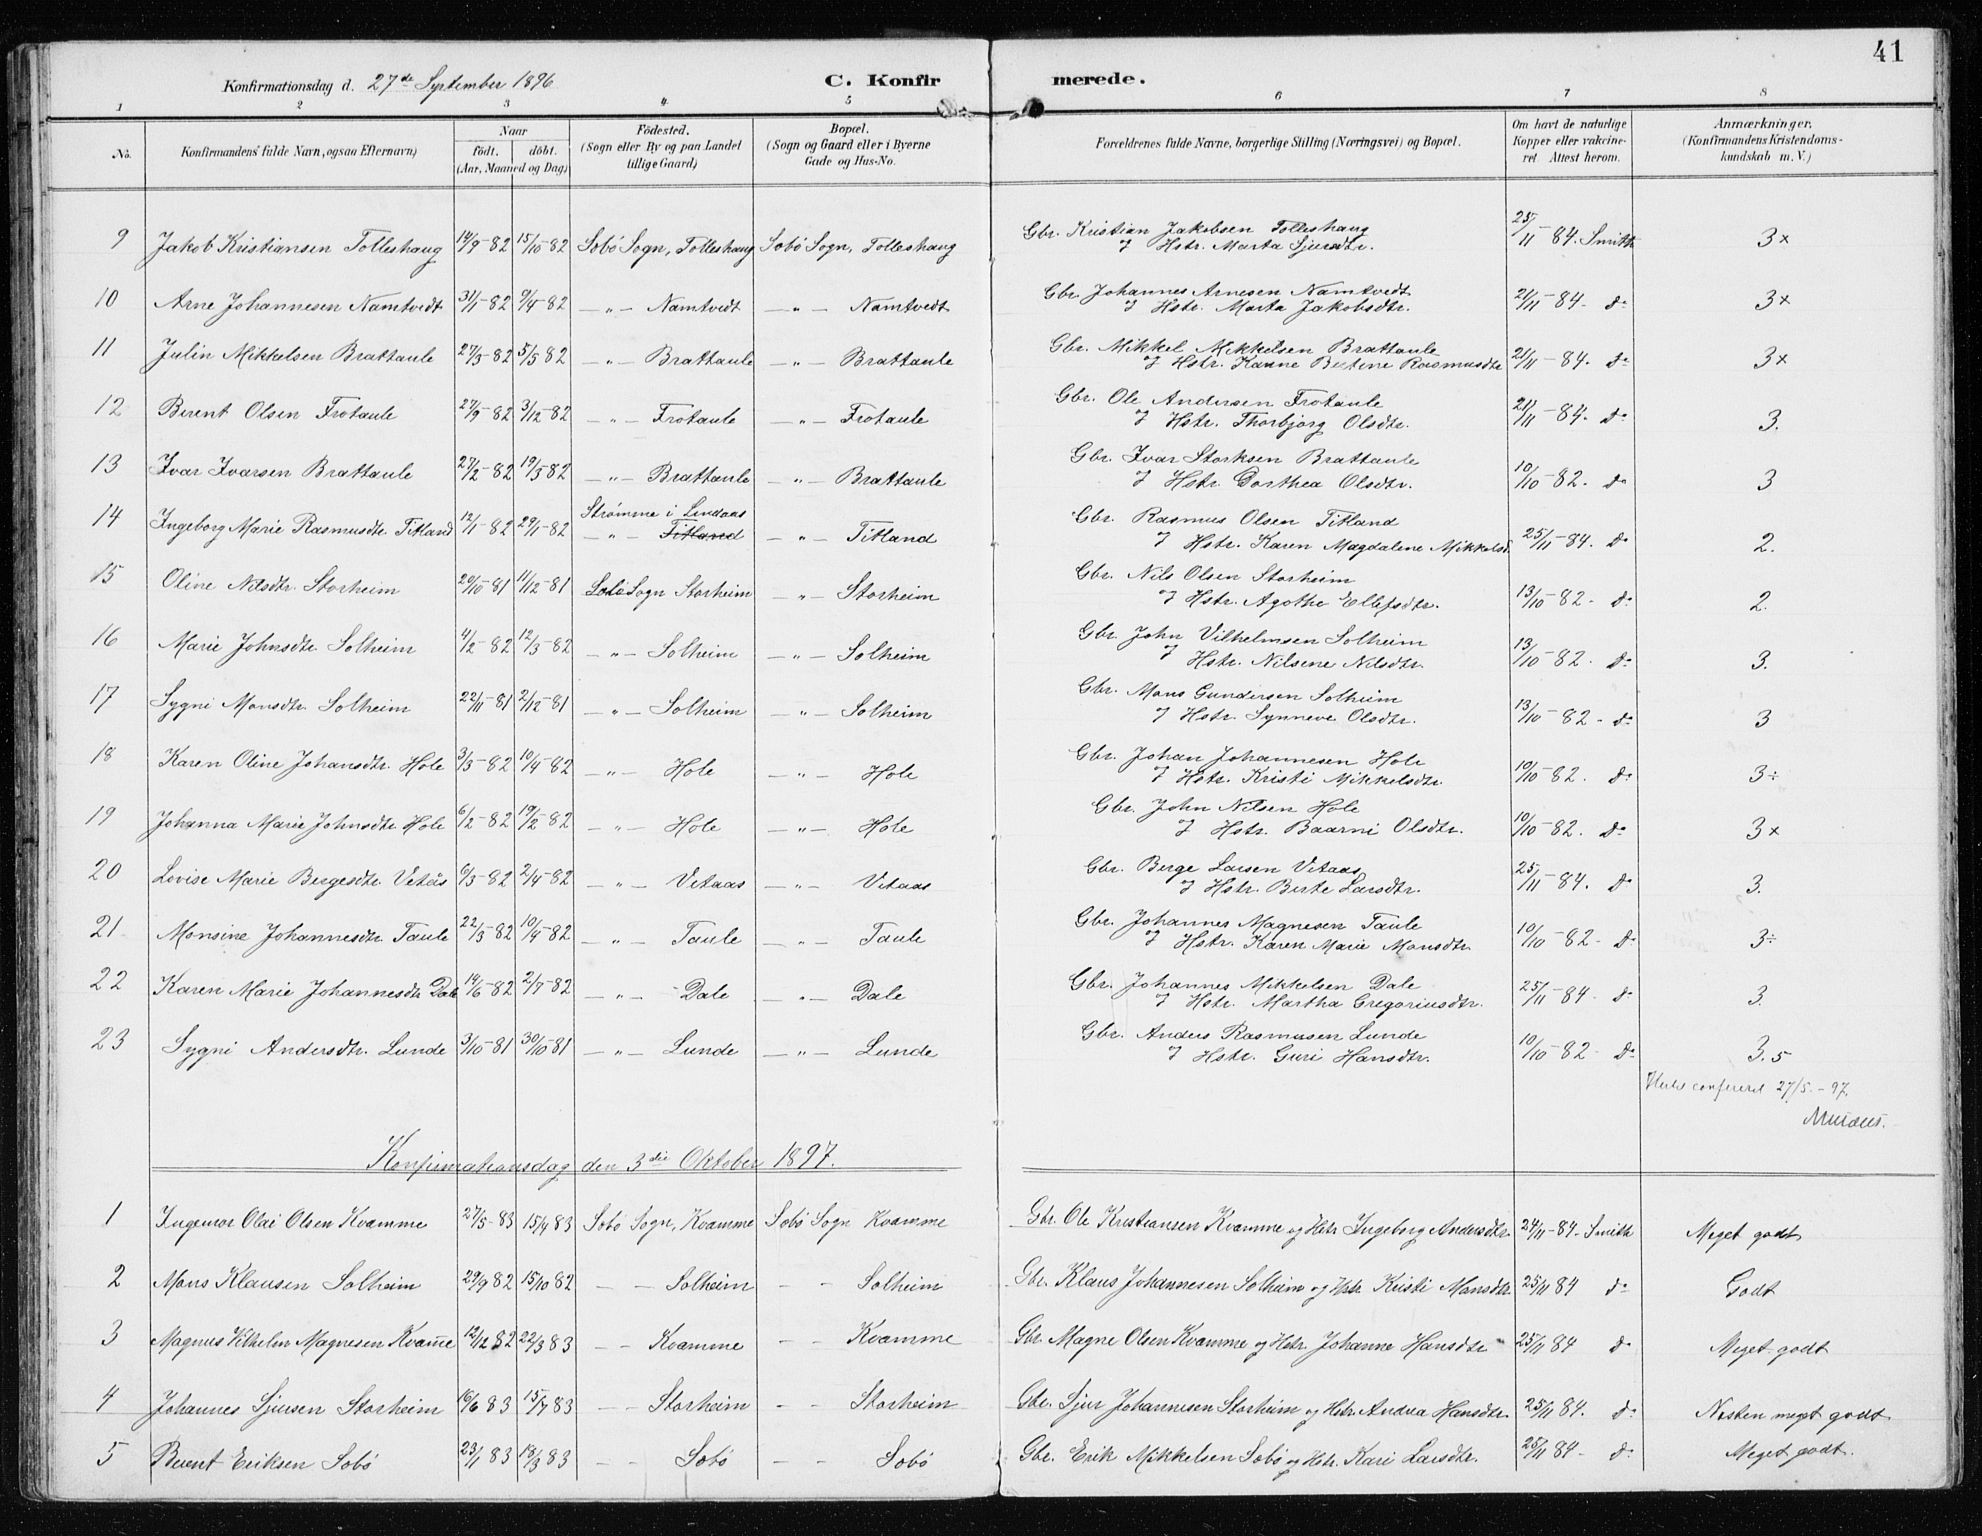 41
Konfirmationsdag d. 27de September 1896 C. Konfirmerede.
1 2 3 4 5 6 7 8
No. Konfirmandens' fulde Navn, ogsaa Efternavn) Naar födt. döbt. (Aar, Maaned og Dag) Födested. (Sogn eller By og paa Landet tillige Gaard) Bopæl. (Sogn og Gaard eller i Byerne Gade og Hus-No. Forældrenes fulde Navne, borgerlige Stilling (Næringsvei) og Bopæl. Om havt de naturlige Kopper eller vakcineret. Attest herom. Anmærkninger, (Konfirmandens Kristendomskundskab m. V.)
9 Jakob Kristiansen Tolleshaug 14/9-82 15/10-82 Sobø Sogn, Tolleshaug Sobø Sogn, Tolleshaug Gbr. Kristian Jakobsen Tolleshaug 25/11-84. Smith 3x
I Hstr. Marta Sjursdtr.
10 Arne Johannesen Namtvedt 31/1-82 9/4-82 -"- Namtvedt -"- Namtvedt Gbr. Johannes Arnesen Namtvedt 21/11-84- do 3x
I Hstr. Marta Jakobsdtr.
11 Julin Mikkelsen Brattaule 27/3-82 5/5 82 -"- Brattaule -"- Brattaule Gbr. Mikkel Mikkelsen Brattaule 21/11-84. do 3x
I Hstr. Hanne Bertine Rasmusdtr
12 Berent Olsen Frotaule 27/9-82 3/12-82 -"- Frotaule -"- Frotaule Gbr. Ole Andersen Frotaule 21/11-84. do 3.
I Hstr. Thorbjørg Olsdtr.
13 Ivar Ivarsen Brattaule 27/2-82 19/3 82 -"- Brattaule -"- Brattaule Gbr. Ivar Storksen Brattaule 10/10-82. do 3
I Hstr. Dorthea Olsdtr.
14 Ingeborg Marie Rasmusdtr. Titland 12/11-82 29/11-82 Strømme i Lindaas -"- Titland -"- Titland Gbr. Rasmus Olsen Titland 25/11-84. do 2.
I Hstr. Karen Magdalene Mikkelsd.
15 Oline Nilsdtr. Storheim 20/10-81 11/12-81 Sobø Sogn Storheim -"- Storheim Gbr. Nils Olsen Storheim 13/10-82- do 2.
I Hstr. Agothe Ellefsdtr.
16 Marie Johnsdtr. Solheim 4/2-82 12/3-82 -"- Solheim -"- Solheim Gbr. John Vilhelmsen Solheim 13/10-82. do 3.
I Hstr. Nilsene Nilsdtr.
17 Sygni Monsdtr. Solheim 22/11-81 2/12-81 -"- Solheim -"- Solheim Gbr. Mons Gundersen Solheim 13/10-82- do 3
I Hstr. Synneve Olsdtr.
18 Karen Oline Johansdtr. Hole 3/3-82 10/4-82 -"- Hole -"- Hole Gbr. Johan Johannesen Hole 10/10-82. do 3÷
I Hstr. Kristi Mikkelsdtr.
19 Johanna Marie Johnsdtr Hole 6/2-82 19/2-82 -"- Hole -"- Hole Gbr. John Nilsen Hole 10/10-82. do 3x
I Hstr. Baarni Olsdtr.
20 Lovise Marie Bergesdtr. Vetås 6/3-82 2/4-82 -"- Vetaas -"- Vetaas Gbr. Berge Larsen Vetaas 25/11-84. do 3.
I Hstr. Berte Larsdtr.
21 Monsine Johannesdtr. Taule 22/3-82 10/4-82 -"- Taule -"- Taule Gbr. Johannes Magnesen Taule 10/10-82- do 3÷
I Hstr. Karen Marie Monsdtr.
22 Karen Marie Johannesdtr Dale 14/6-82 2/7-82 -"- Dale -"- Dale Gbr. Johannes Mikkelsen Dale 25/11-84 do 3.
I Hstr. Martha Gregoriusdtr.
23 Sygni Andersdtr. Lunde 3/10-81 30/10-81 -"- Lunde -"- Lunde Gbr. Anders Rasmusen Lunde 10/10-82- do 3.5
I Hstr. Guri Hansdtr.
confereret 27/5-97.
Konfirmationsdag den 3die Oktober 1897.
1 Ingemor Olai Olsen Kvamme 27/5-83 15/4 83 Sobø Sogn, Kvamme Sobø Sogn Kvamme Gbr. Ole Kristiansen Kvamme og Hstr Ingeborg Andersdtr. 24/11-84. Smith Meget godt
2 Mons Klausen Solheim 29/9 82 15/10 82 - - Solheim - - Solheim Gbr. Klaus Johannesen Solheim og Hstr Kristi Monsdtr 25/11 84 do Godt
3 Magnus Vilhelm Magnesen Kvam̄e 12/12 82 22/3 83 - - Kvamme - - Kvamme Gbr. Magne Olsen Kvamme og Hstr. Johanne Hansdtr 25/11 84 do Meget godt
4 Johannes Sjursen Storheim 16/6 83 15/7 83 - - Storheim - - Storheim Gbr. Sjur Johannesen Storheim og Hstr. Andrea Hansdtr. 25/11 84. do Næsten meget godt
5 Berent Eriksen Sobø 23/1 83 18/3 83 - - Sobø - - Sobø Gbr. Erik Mikkelsen Sobø og Hstr. Kari Larsdtr. 25/11 84- do Meget godt.